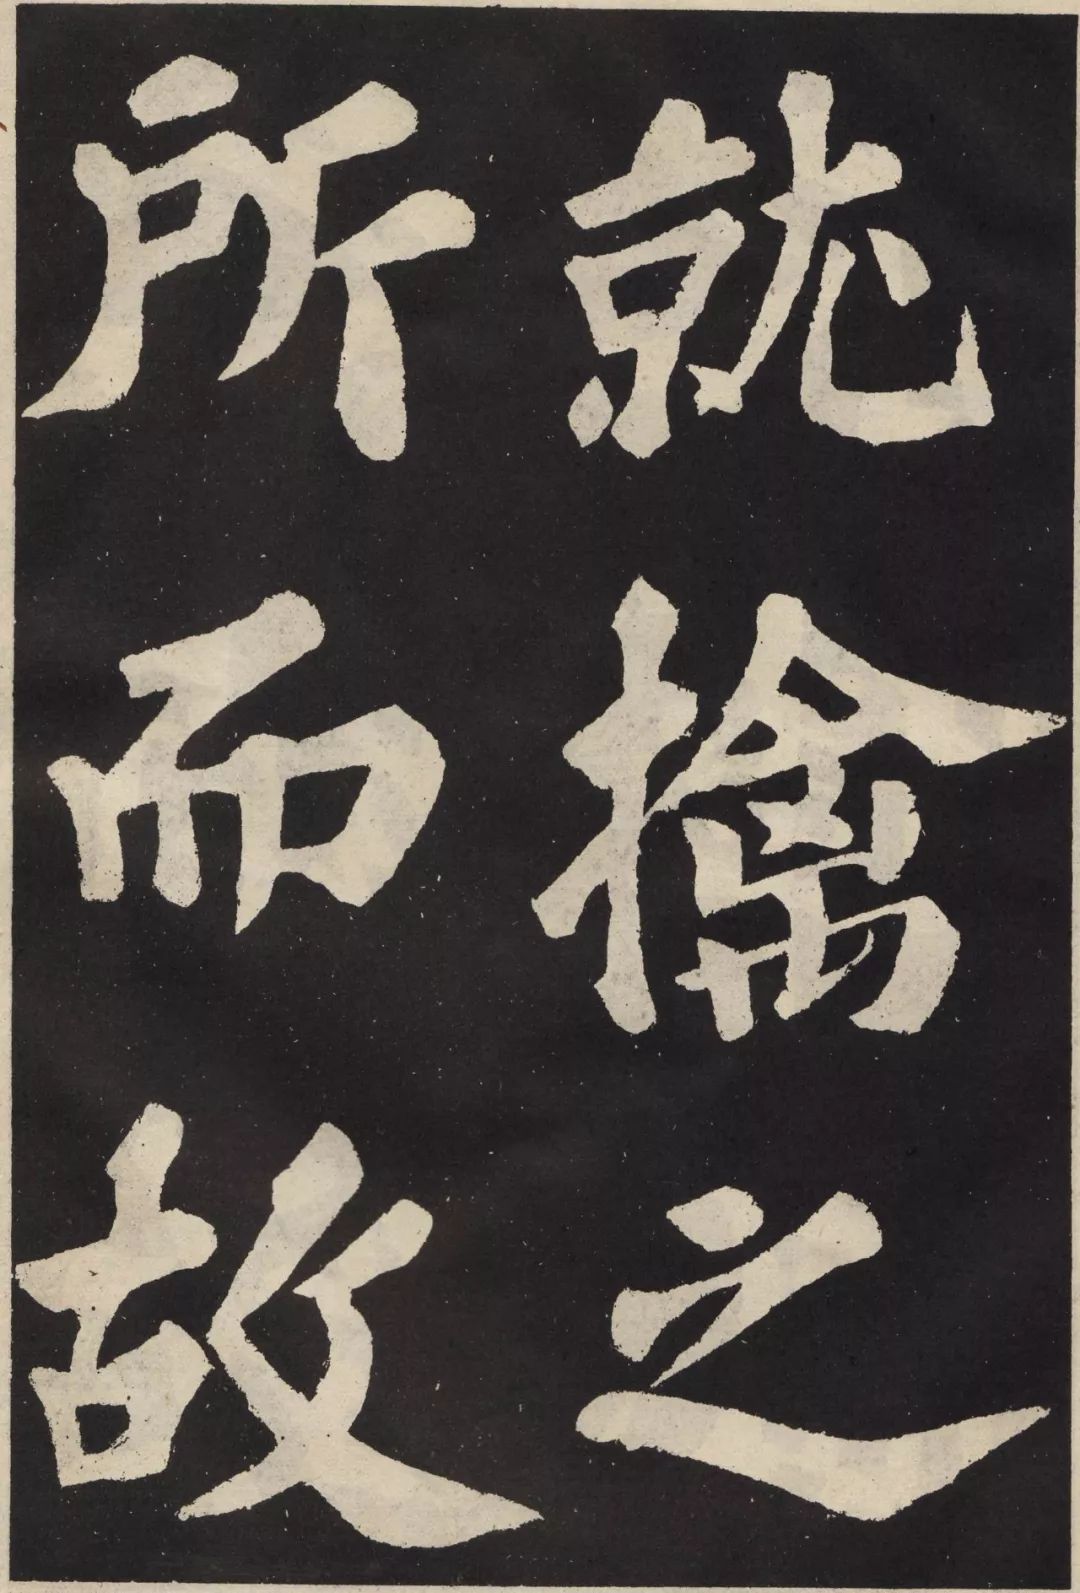 就擒之
所而故